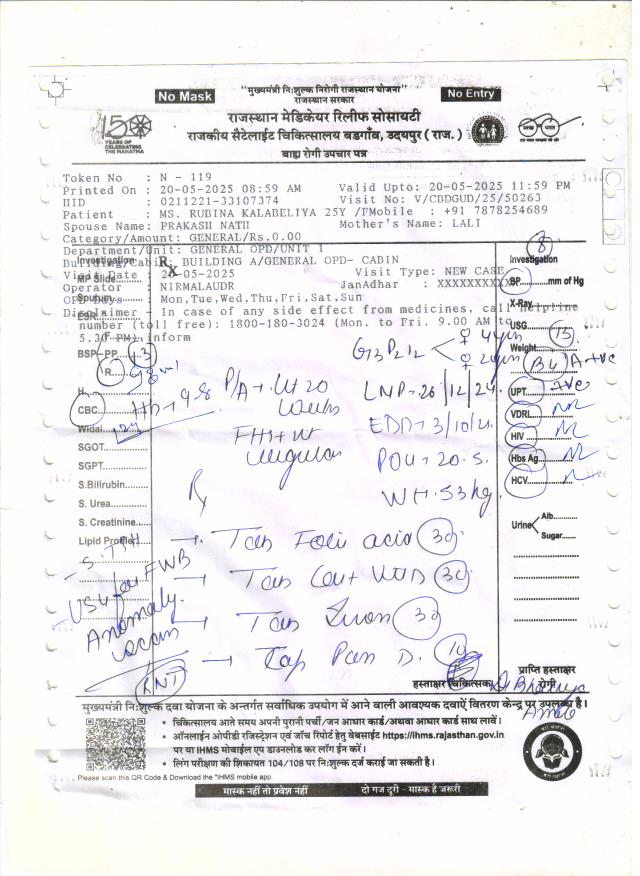 "मुख्यमंत्री निःशुल्क निरोगी राजस्थान योजना"
राजस्थान सरकार
No Mask
No Entry
राजस्थान मेडिकेयर रिलीफ सोसायटी
राजकीय सैटेलाईट चिकित्सालय बडगाँव, उदयपुर ( राज. )
बाह्य रोगी उपचार पत्र
150
YEARS OF
CELEBRATING
THE MAHATMA
Token No : N - 119
Printed On : 20-05-2025 08:59 AM Valid Upto: 20-05-2025 11:59 PM
HID : 0211221-33107374 Visit No: V/CBDGUD/25/50263
Patient : MS. RUBINA KALABELIYA 25Y /FMobile : +91 7878254689
Spouse Name: PRAKASH NATH Mother's Name: LALI
Category/Amount: GENERAL/Rs.0.00
Department/Unit: GENERAL OPD/UNIT 1
Building/Cabin: BUILDING A/GENERAL OPD- CABIN
Visit Date : 20-05-2025 Visit Type: NEW CASE
Operator : NIRMALAUDR JanAdhar : XXXXXXXXXX
OPD Days : Mon,Tue,Wed,Thu,Fri,Sat,Sun
Disclaimer - In case of any side effect from medicines, call helpline
number (toll free): 1800-180-3024 (Mon. to Fri. 9.00 AM to
5.30 PM) inform
Investigation
MP Slide
Sputum
ESR
F
BSP-PP
R
H
CBC
Widal
SGOT
SGPT
S.Bilirubin
S. Urea
S. Creatinine
Lipid Profile
Rx
Investigation
8
BP mm of Hg
X-Ray
USG
Weight
UPT +ve
VDRL NR
HIV
Hbs Ag
HCV
Urine Alb
Sugar
G3P2L2
B+ve
Hb → 9.8
P/A → Ut 20 weeks
FHS →
regular
LMP → 26/12/24
EDD → 3/10/25
POG → 20
Wt. 53 kg
Rx
→ Tab Folic acid 30
→ Tab Cal + Vit D 30
→ Tab Iron 30
→ Cap Pan D. 10
- S. TSH
- USG for FWB
Anomaly
scan
RNT
हस्ताक्षर चिकित्सक
प्राप्ति हस्ताक्षर
रोगी
मुख्यमंत्री निःशुल्क दवा योजना के अन्तर्गत सर्वाधिक उपयोग में आने वाली आवश्यक दवाएं वितरण केन्द्र पर उपलब्ध है।
• चिकित्सालय आते समय अपनी पुरानी पर्ची/जन आधार कार्ड/अथवा आधार कार्ड साथ लावें।
• ऑनलाईन ओपीडी रजिस्ट्रेशन एवं जाँच रिपोर्ट हेतु वेबसाईट https://ihms.rajasthan.gov.in
पर या IHMS मोबाईल एप डाउनलोड कर लॉग ईन करें।
• लिंग परीक्षण की शिकायत 104/108 पर निःशुल्क दर्ज कराई जा सकती है।
Please scan this QR Code & Download the "IHMS mobile app.
मास्क नहीं तो प्रवेश नहीं दो गज दूरी - मास्क है जरूरी